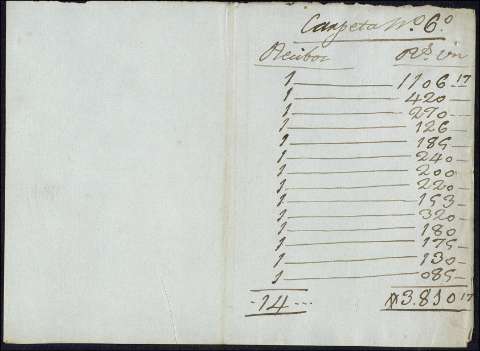 Carpeta Nº 6º
Recibos Rs. vn
1 1106 17
1 420
1 270
1 126
1 185
1 240
1 200
1 220
1 153
1 320
1 180
1 175
1 130
1 085
14 3.810 17